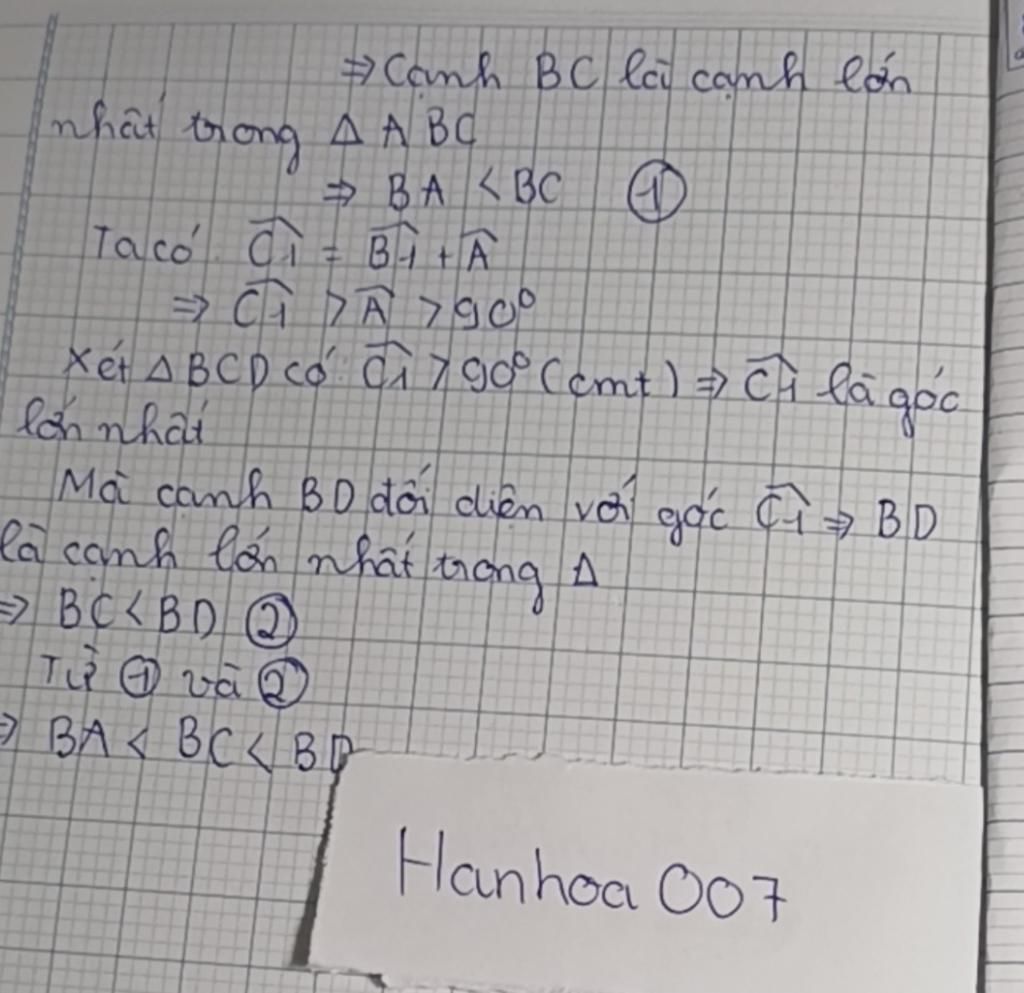 ⇒ Cạnh BC là cạnh lớn
nhất trong Δ ABC
⇒ BA < BC ①
Ta có: Ĉ1 = B̂1 + Â
⇒ Ĉ1 > Â > 90°
Xét Δ BCD có: Ĉ1 > 90° (cmt) ⇒ Ĉ1 là góc
lớn nhất
Mà cạnh BD đối diện với góc Ĉ1 ⇒ BD
là cạnh lớn nhất trong Δ
⇒ BC < BD ②
Từ ① và ②
⇒ BA < BC < BD
Hanhoa 007